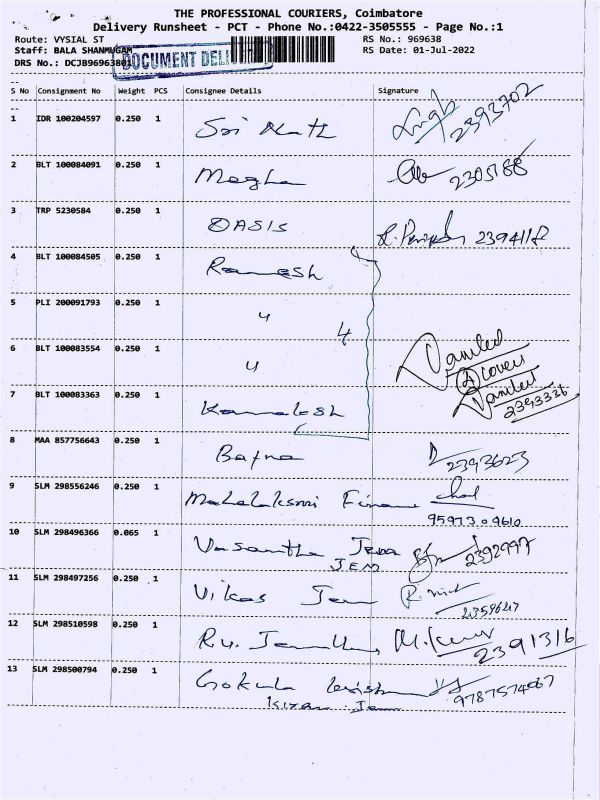 THE PROFESSIONAL COURIERS, Coimbatore
Delivery Runsheet - PCT - Phone No.:0422-3505555 - Page No.:1
Route: VYSIAL ST RS No.: 969638
Staff: BALA SHANMUGAM RS Date: 01-Jul-2022
DOCUMENT DELI
DRS No.: DCJB96963801
S No Consignment No Weight PCS Consignee Details Signature
1 IDR 100204597 0.250 1 Sri Nath 2393702
2 BLT 100084091 0.250 1 Megha 2305188
3 TRP 5230584 0.250 1 OASIS
4 BLT 100084505 0.250 1 Ramesh
5 PLI 200091793 0.250 1 " 4
6 BLT 100083554 0.250 1 "
4 covers
7 BLT 100083363 0.250 1 Kamalesh 2393336
8 MAA 857756643 0.250 1 Bafna 2393623
9 SLM 298556246 0.250 1 Mahalaksmi Finance
95973 09610
10 SLM 298496366 0.065 1 Vasantha Jem 2392997
JEM
11 SLM 298497256 0.250 1 Vikas Jem
12 SLM 298510598 0.250 1 2391316
13 SLM 298500794 0.250 1 Gokula 9787574067
Kiran Jem